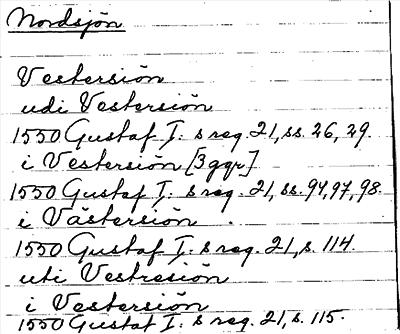 Nordsjön
Vestersiön
udi Vestersiön
1550 Gustaf I:s reg. 21, ss. 26, 29.
i Vestersiön [3 ggr]
1550 Gustaf I:s reg. 21, ss. 94, 97, 98.
i Västersiön
1550 Gustaf I:s reg. 21, s. 114.
uti Vestresiön
i Vestersiön
1550 Gustaf I:s reg. 21, s. 115.